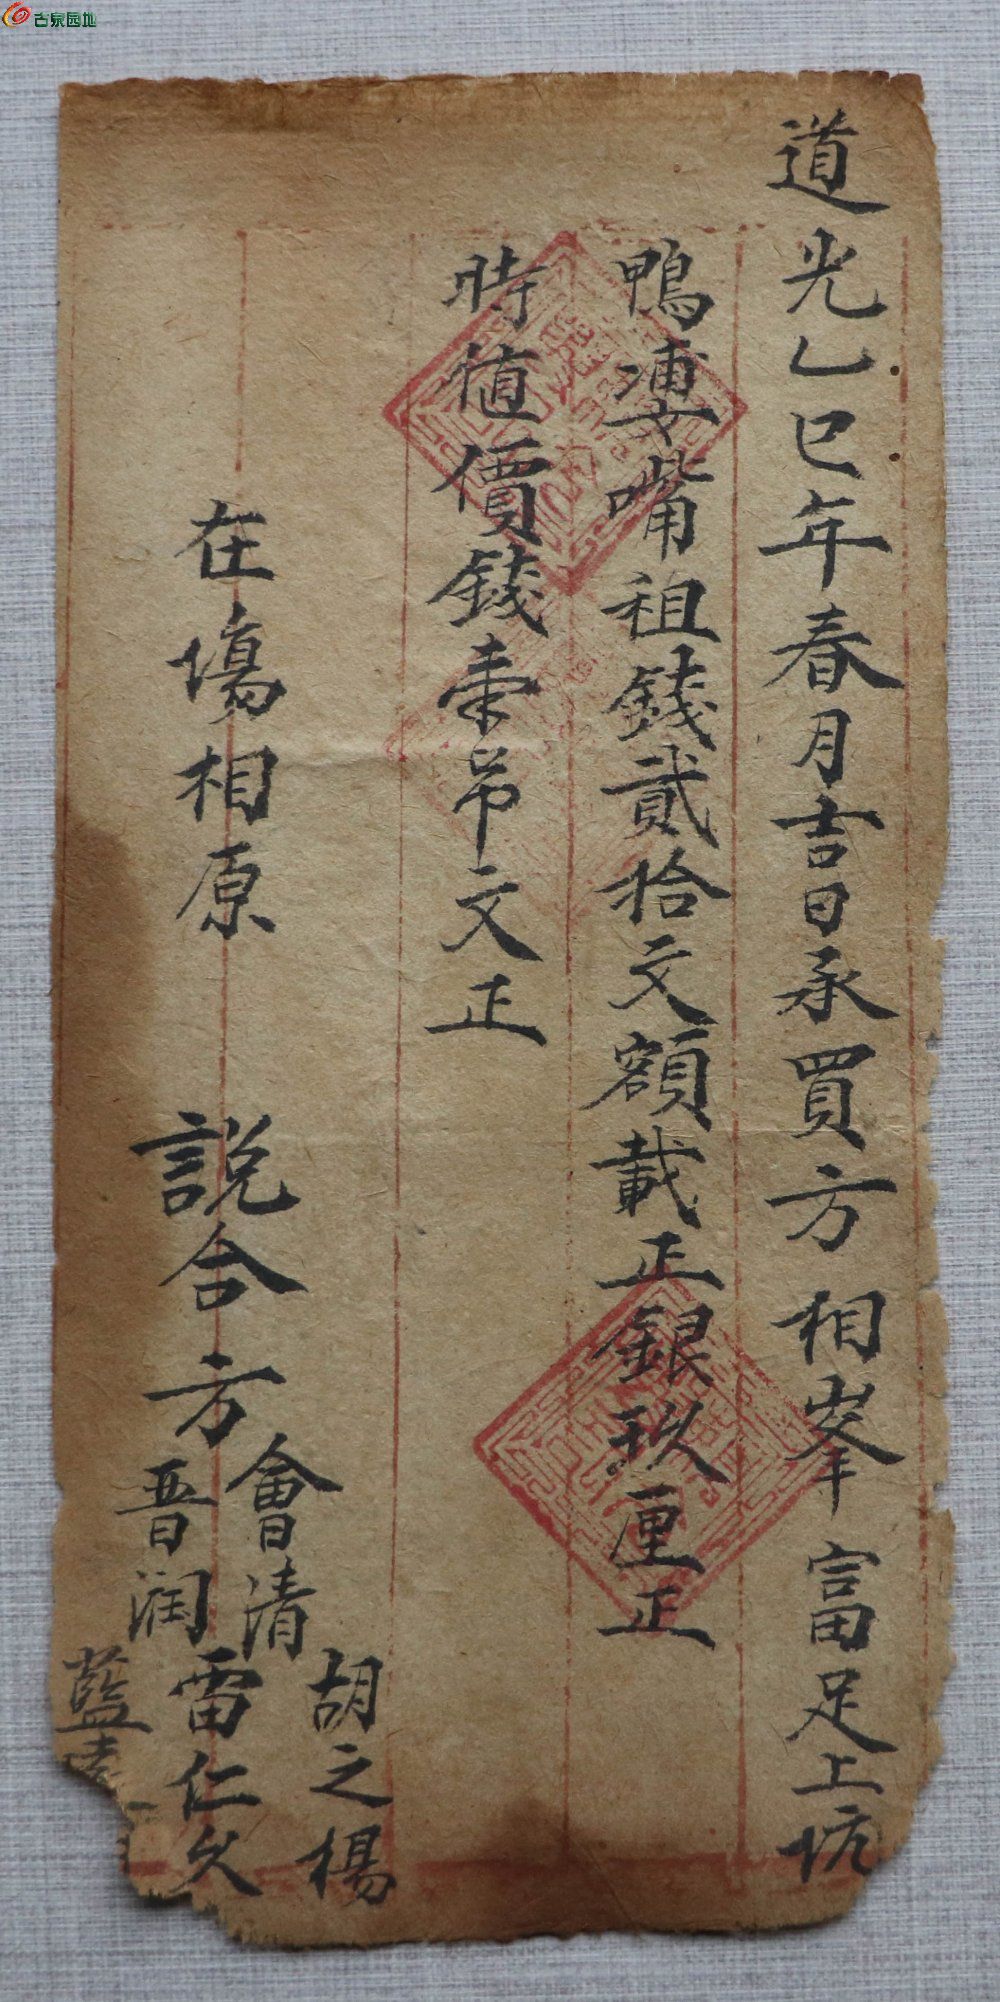 道光乙巳年春月吉日承買方相峯富足上坑
鴨婆嘴租錢貳拾文額載正銀玖厘正
時值價錢壹吊文正
在塲相原
説合方會清
晋润
胡之楊
雷仁久
藍
古泉园地